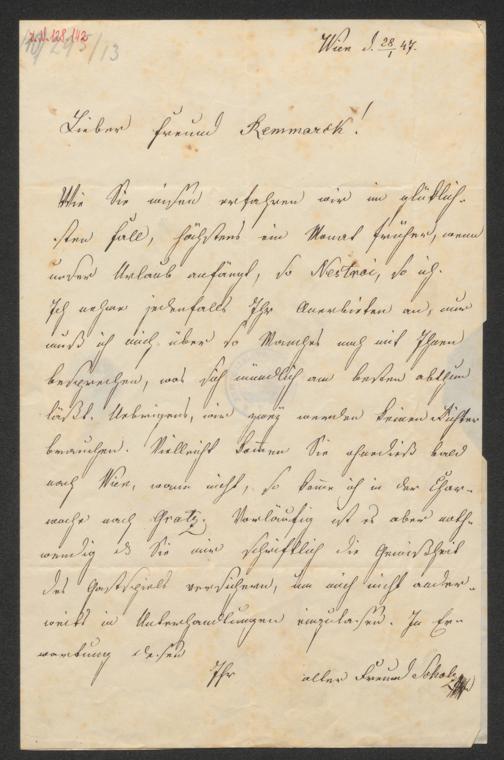 I.N. 128.142
293/13
Wien d. 28/1 47.
Lieber Freund Remmark!
Wie Sie wissen erfahren wir im glücklich-
sten Fall, höchstens ein Monat früher, wenn
unser Urlaub anfängt, so Nestroi, so ich.
Ich nehme jedenfalls Ihr Anerbieten an, nur
muß ich mich über so Manches noch mit Ihnen
besprechen, was sich mündlich am besten abthun
läßt. Uebrigens, wir zwey werden keinen Richter
brauchen. Vielleicht kommen Sie ohnedieß bald
nach Wien, wenn nicht, so komme ich in der Char-
woche nach Gratz. Vorläufig ist es aber noth-
wendig daß Sie mir schriftlich die Gewißheit
des Gastspiels versichern, um mich nicht ander-
weits in Unterhandlungen einzulassen. In Er-
wartung dessen
Ihr alter Freund Scholz